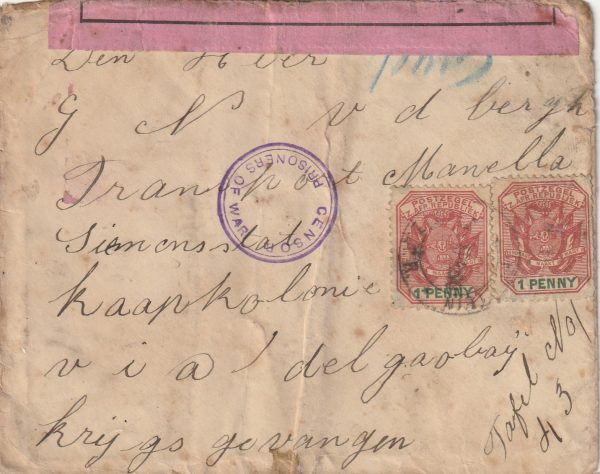 Den Heer
G N v d bergh
Transport Manella
Siemensstat
kaapkolonie
via delgaobaij
krijgs gevangen
Tafel No
43
CENSOR
PRISONERS OF WAR
POSTZEGEL
Z. AFR. REPUBLIEK
1 PENNY
POSTZEGEL
Z. AFR. REPUBLIEK
1 PENNY